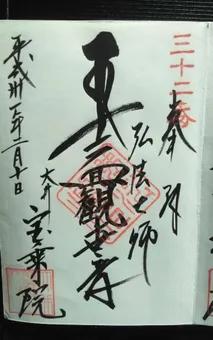 三十二番
奉拝
弘法大師
十一面觀世音
大井
宝乗院
平成卅一年 月十日